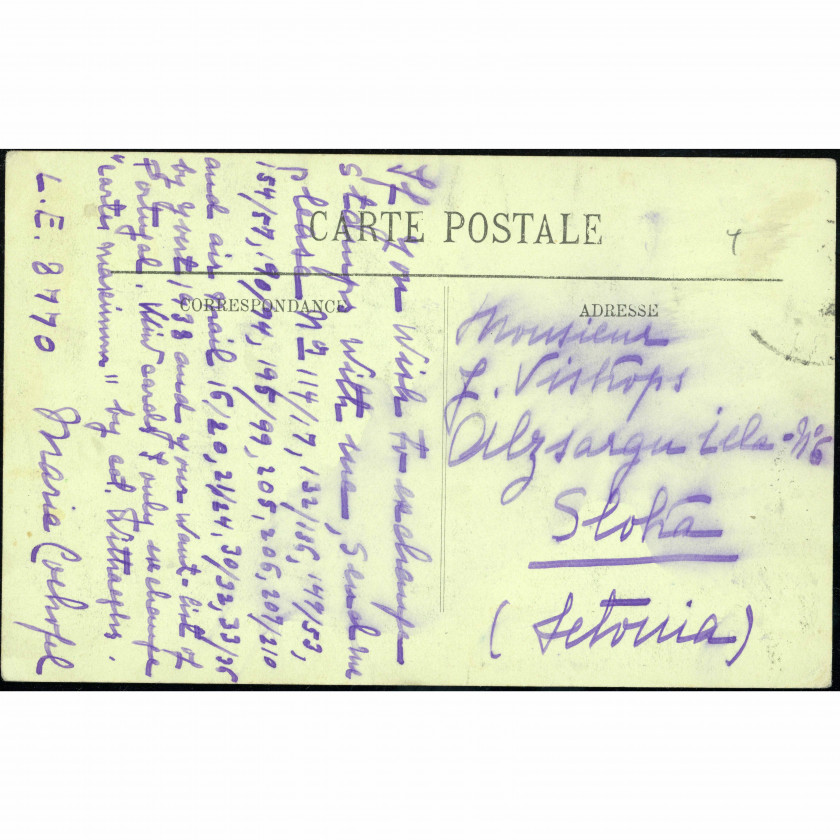 CARTE POSTALE
CORRESPONDANCE
ADRESSE
If you wish to exchange
stamps with me, send me
please Nº 114/17, 132/135, 149/53,
154/57, 190/94, 195/99, 205, 206, 207/210
and air mail 15/20, 21/24, 30/32, 33/35
by Yvert 1938 and your want-list of
Portugal. View cards I only exchange
"cartes maximum" by cat.
L.E. 8770 Maria
Monsieur
J. Viskops
Aizsargu iela - Nº 6
Sloka
(Letonia)